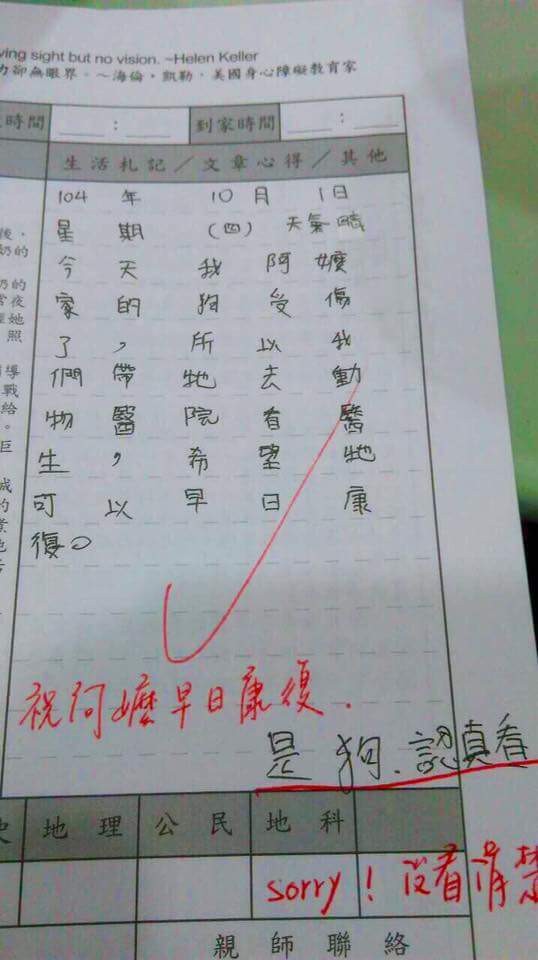 ving sight but no vision. ~Helen Keller
力卻無眼界。～海倫‧凱勒‧美國身心障礙教育家
時間 : 到家時間 :
生活札記／文章心得／其他
104年10月1日
星期(四) 天氣晴
今天我阿嬤
家的狗受傷
了，所以我
們帶牠去動
物醫院看醫
生，希望牠
可以早日康
復。
祝阿嬤早日康復.
是狗.認真看
地理 公民 地科
sorry！沒看清楚
親師聯絡
後，
奶的
奶的
常夜
她
照
導
戰
給
。
巨
成
的
業